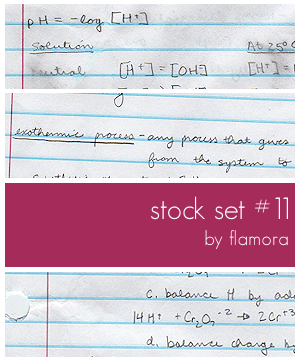 pH = -log [H⁺]
Solution At 25°C
neutral [H⁺] = [OH⁻] [H⁺] =
exothermic process - any process that gives
from the system to
stock set #11
by flamora
c. balance H by add
14H⁺ + Cr₂O₇⁻² → 2Cr⁺³
d. balance charge by